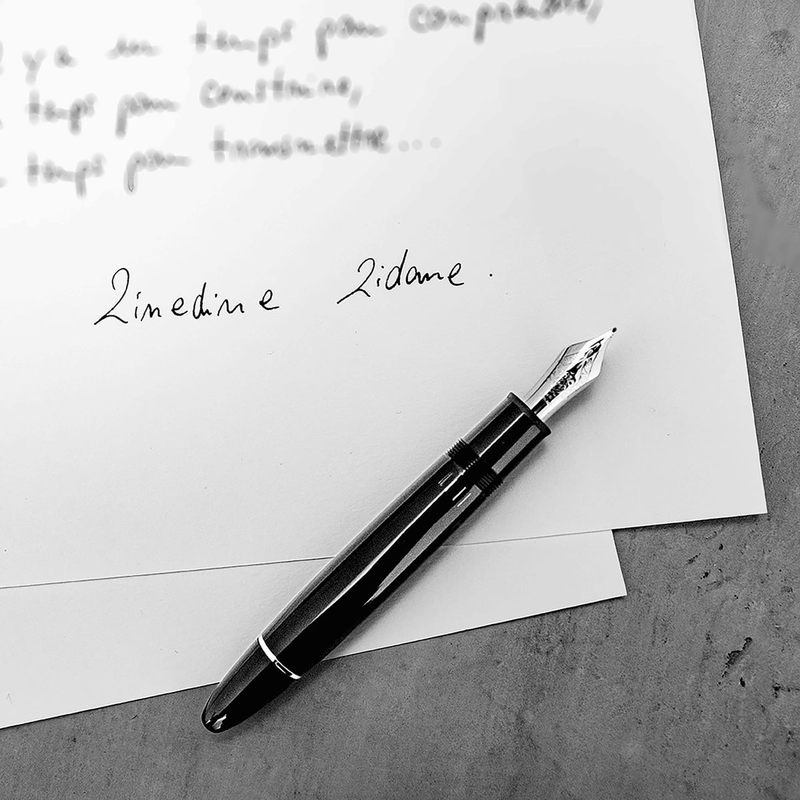 y a un temps pour comprendre,
temps pour construire,
temps pour transmettre...
Zinedine Zidane.